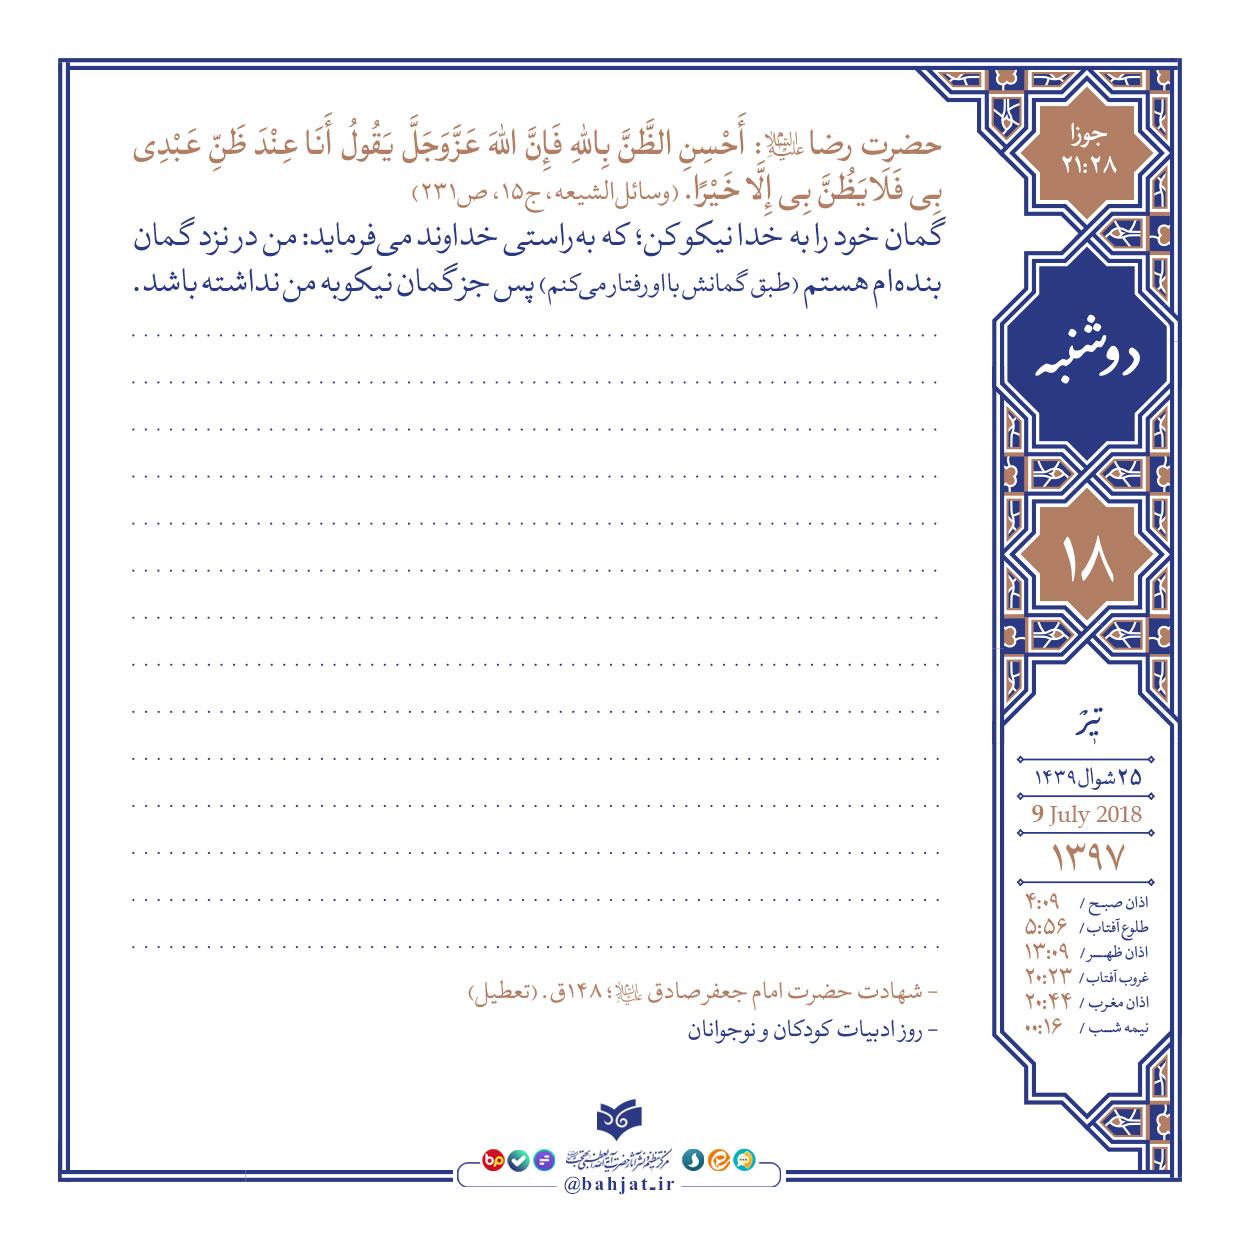 حضرت رضا علیه‌السلام: أَحْسِنِ الظَّنَّ بِاللهِ فَإِنَّ اللهَ عَزَّوَجَلَّ يَقُولُ أَنَا عِنْدَ ظَنِّ عَبْدِی
بِی فَلَايَظُنَّ بِی إِلَّا خَيْرًا. (وسائل‌الشیعه، ج۱۵، ص۲۳۱)
گمان خود را به خدا نیکو کن؛ که به‌راستی خداوند می‌فرماید: من در نزد گمان
بنده‌ام هستم (طبق گمانش با او رفتار می‌کنم) پس جز گمان نیکو به من نداشته باشد.
- شهادت حضرت امام جعفر صادق علیه‌السلام؛ ۱۴۸ق. (تعطیل)
- روز ادبیات کودکان و نوجوانان
جوزا
۲۱:۲۸
دوشنبه
۱۸
تیر
۲۵ شوال ۱۴۳۹
9 July 2018
۱۳۹۷
اذان صبح / ۴:۰۹
طلوع آفتاب / ۵:۵۶
اذان ظهر / ۱۳:۰۹
غروب آفتاب / ۲۰:۲۳
اذان مغرب / ۲۰:۴۴
نیمه شب / ۰۰:۱۶
bp
@bahjat.ir